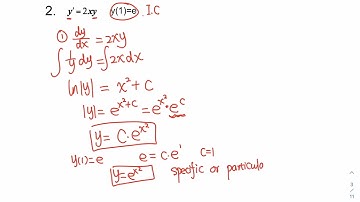 2. y' = 2xy y(1)=e . I.C
① dy/dx = 2xy
∫ 1/y dy = ∫ 2x dx
ln|y| = x² + C
|y| = e^(x²+C) = e^(x²) · e^C
y = C · e^(x²)
y(1) = e e = C · e¹ C=1
y = e^(x²) specific or particula
3
/
11